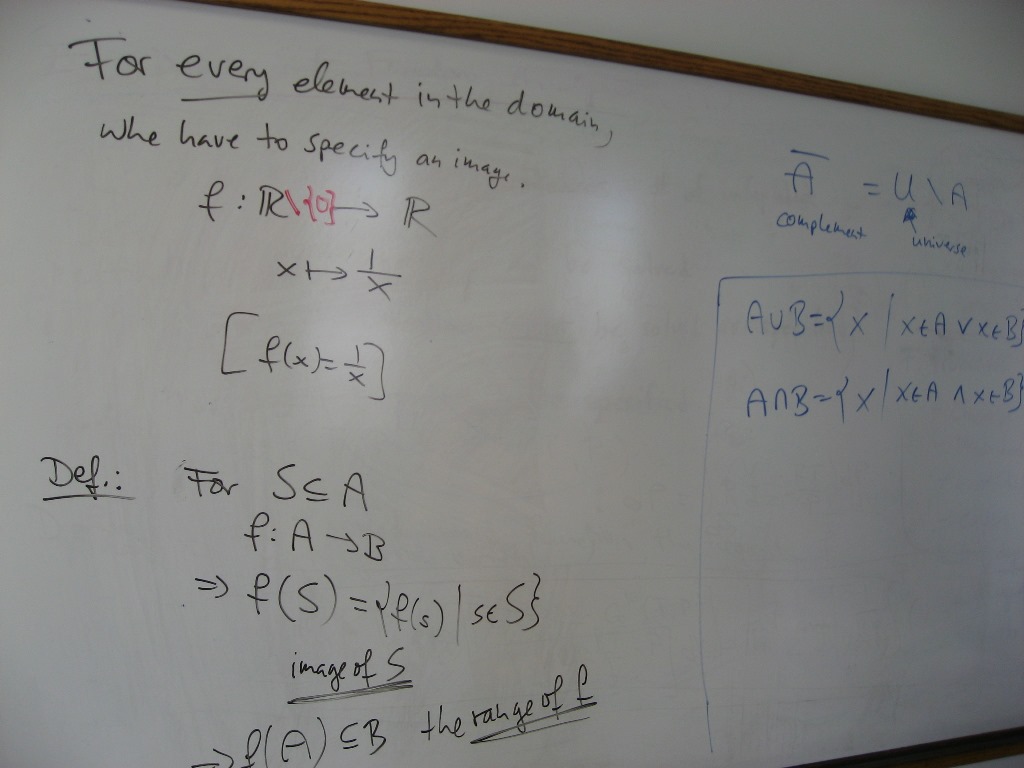 For every element in the domain,
whe have to specify an image.
f : ℝ\{0} → ℝ
x ↦ 1/x
[f(x)=1/x]
Def.: For S ⊆ A
f: A → B
⇒ f(S) = {f(s) | s∈S}
image of S
⇒ f(A) ⊆ B the range of f
A̅ = U \ A
complement universe
A∪B={x | x∈A ∨ x∈B}
A∩B={x | x∈A ∧ x∈B}